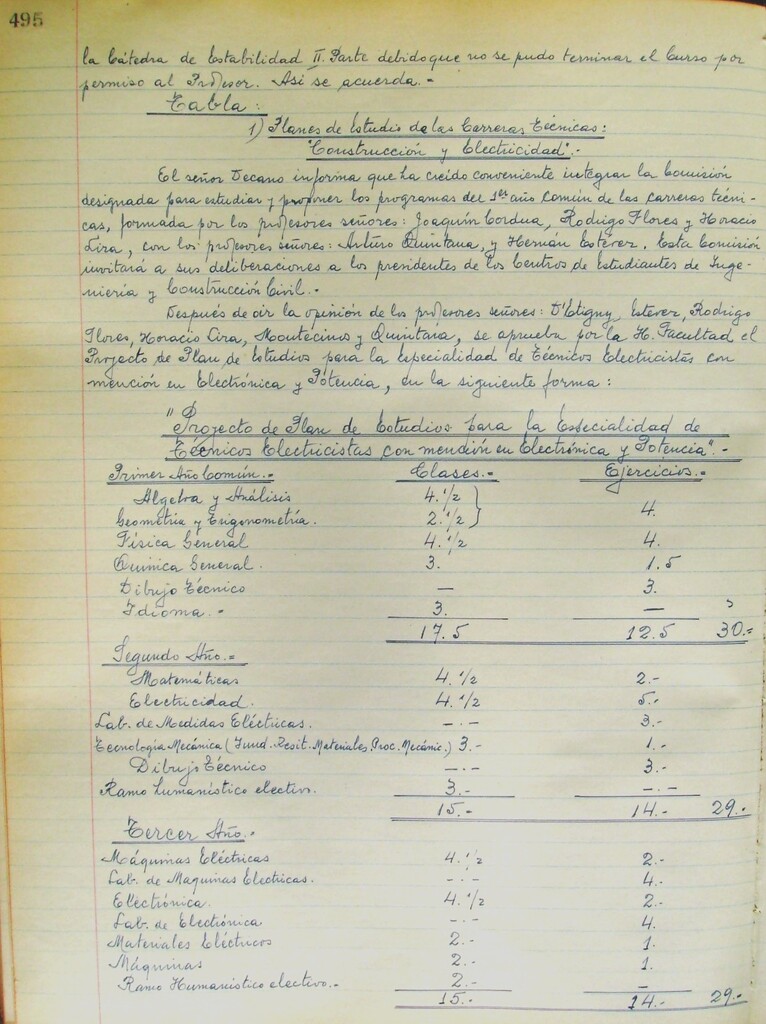 495
la Cátedra de Estabilidad II. Parte debido que no se pudo terminar el Curso por
permiso al Profesor. Así se acuerda.-
Tabla:
1) Planes de Estudio de las Carreras Técnicas:
"Construcción y Electricidad".-
El señor Decano informa que ha creído conveniente integrar la Comisión
designada para estudiar y proponer los programas del 1er año común de las carreras técni-
cas, formada por los profesores señores: Joaquín Cordua, Rodrigo Flores y Horacio
Lira, con los profesores señores: Arturo Quintana, y Hernán Estévez. Esta Comisión
invitará a sus deliberaciones a los presidentes de los Centros de Estudiantes de Inge-
niería y Construcción Civil.-
Después de oir la opinión de los profesores señores: D'Etigny, Estevez, Rodrigo
Flores, Horacio Lira, Montecinos y Quintana, se aprueba por la H. Facultad el
Proyecto de Plan de Estudios para la especialidad de Técnicos Electricistas con
mención en Electrónica y Potencia, en la siguiente forma:
"Proyecto de Plan de Estudios para la Especialidad de
Técnicos Electricistas con mención en Electrónica y Potencia".-
Primer Año Común.- Clases.- Ejercicios.-
Algebra y Análisis 4.1/2
Geometría y Trigonometría. 2.1/2 } 4.
Física General 4.1/2 4.
Química General. 3. 1.5
Dibujo Técnico — 3.
Idioma.- 3. —
17.5 12.5 30.-
Segundo Año.-
Matemáticas 4.1/2 2.-
Electricidad. 4.1/2 5.-
Lab. de Medidas Eléctricas. -.- 3.-
Tecnología Mecánica (Fund. Resit. Materiales Proc. Mecánic.) 3.- 1.-
Dibujo Técnico -.- 3.-
Ramo humanístico electivo. 3.- -.-
15.- 14.- 29.-
Tercer Año.-
Máquinas Eléctricas 4.1/2 2.-
Lab. de Maquinas Electricas. -.- 4.-
Electrónica. 4.1/2 2.-
Lab. de Electrónica -.- 4.
Materiales Eléctricos 2.- 1.
Máquinas 2.- 1.
Ramo Humanístico electivo.- 2.- —
15.- 14.- 29.-